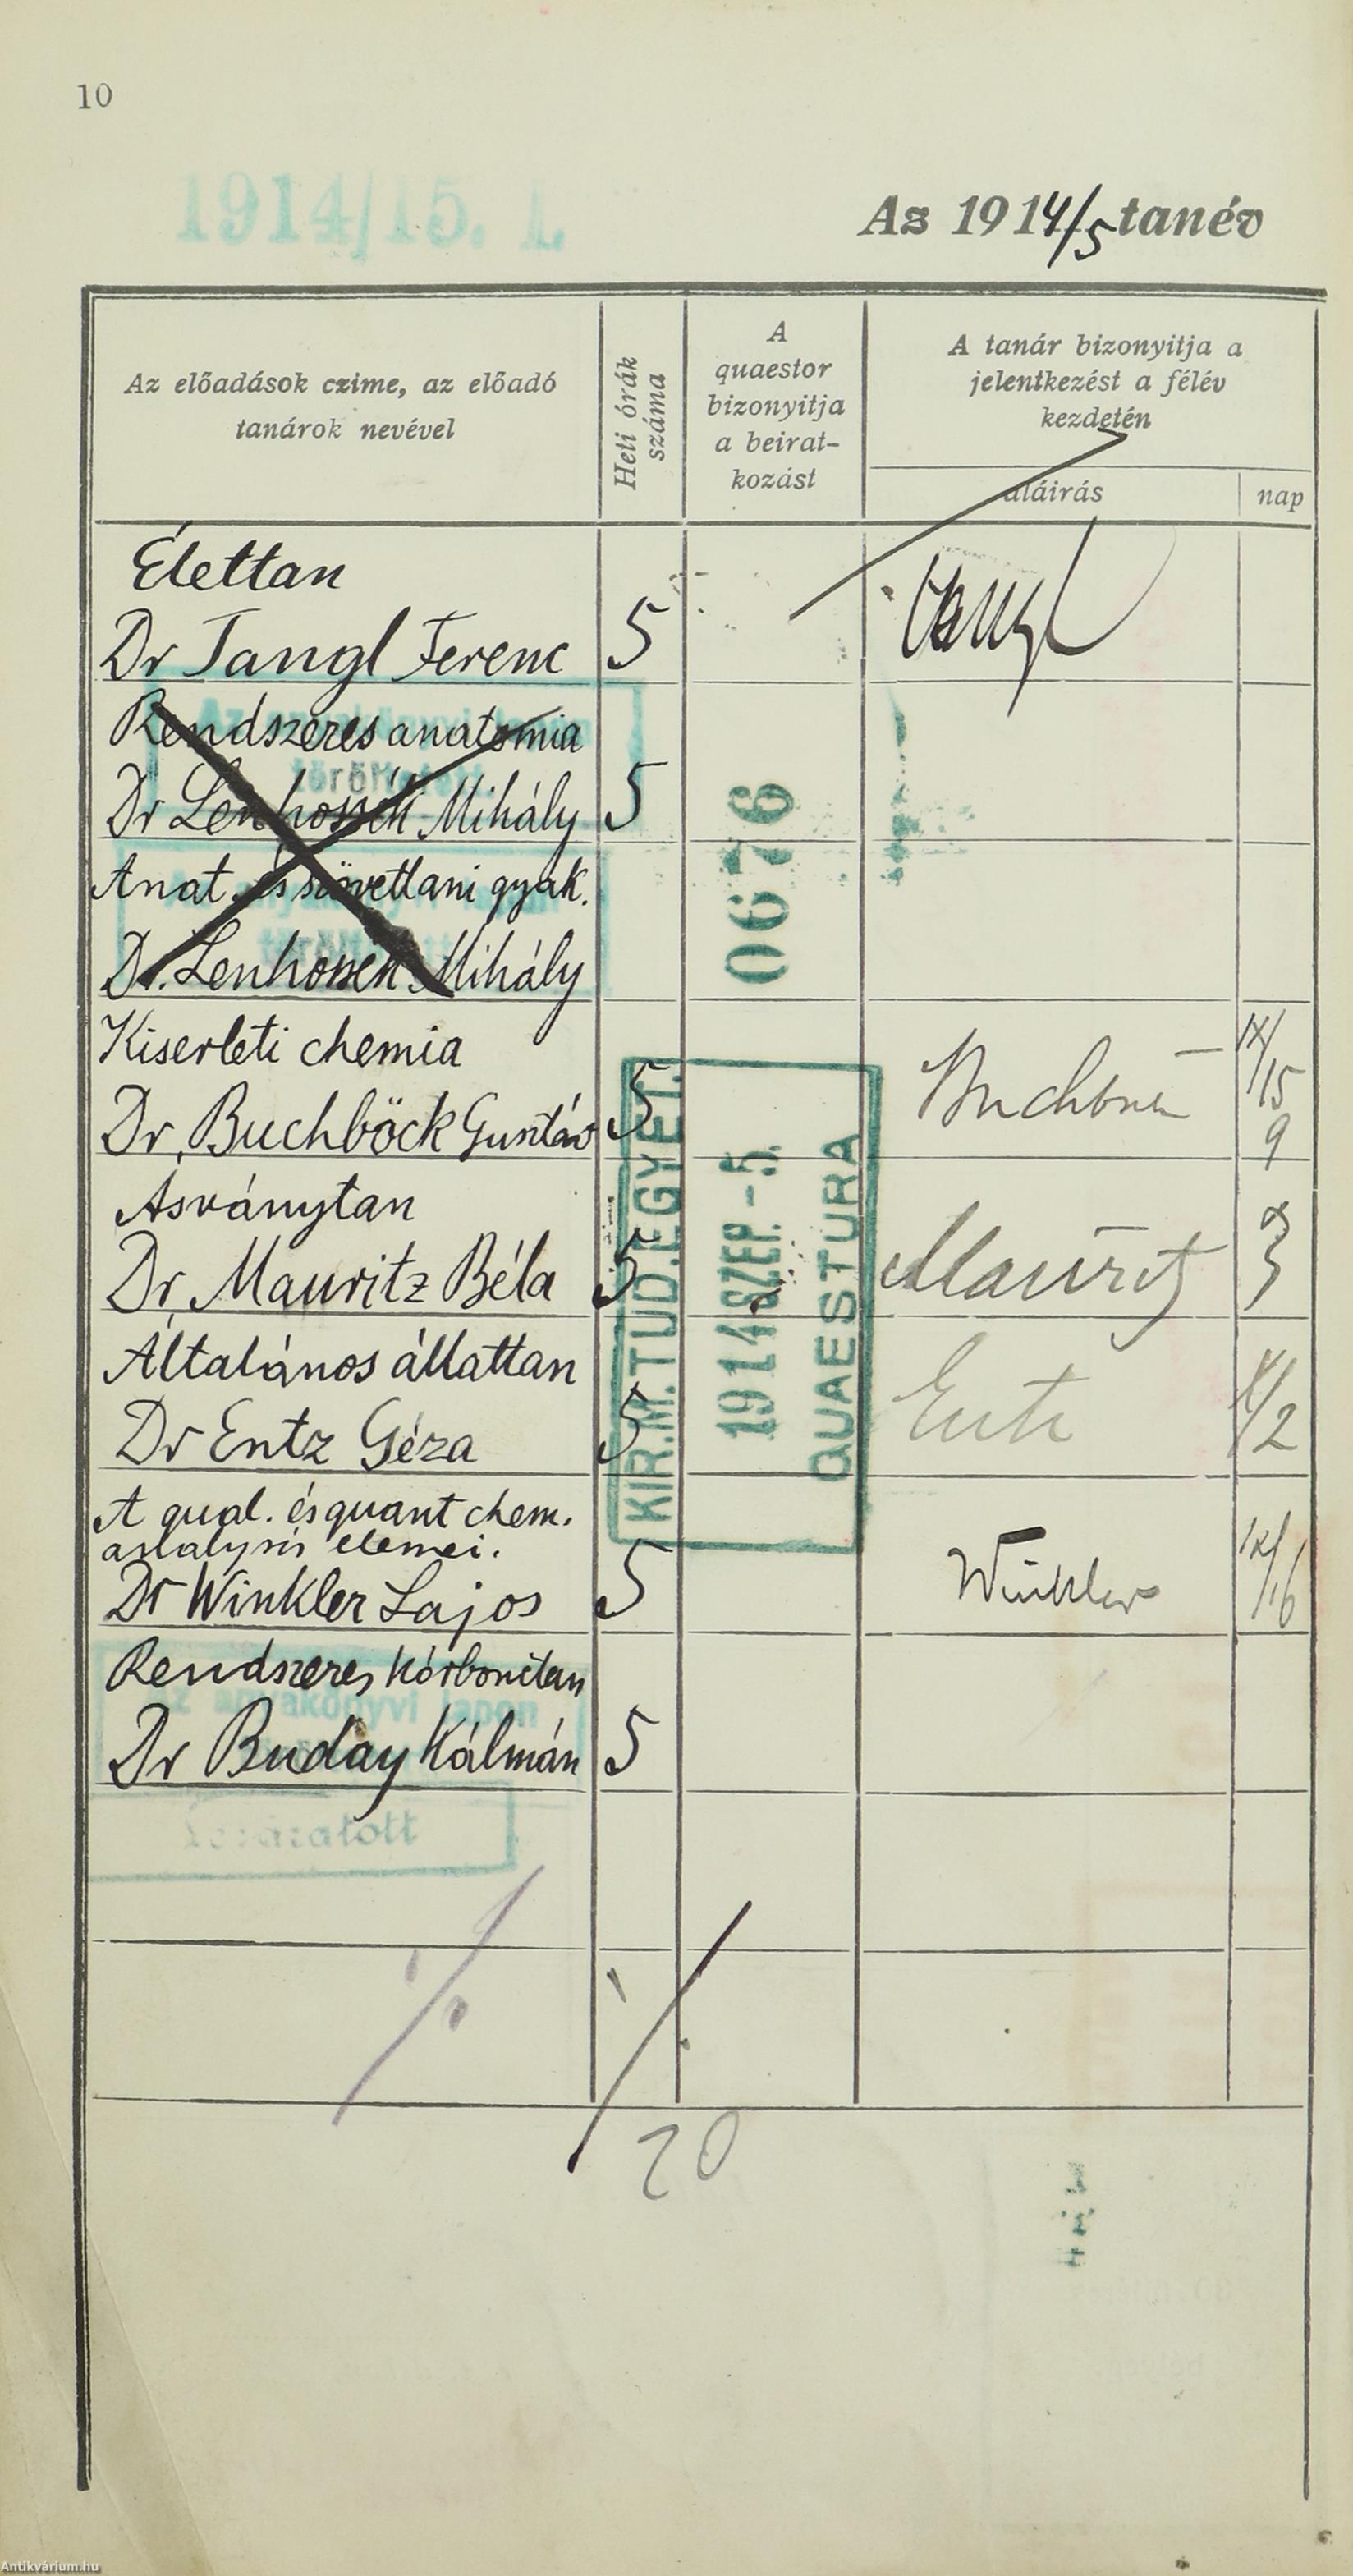 10
1914/15. I.
Az 1914/5 tanév
Az előadások czime, az előadó
tanárok nevével
Heti órák
száma
A
quaestor
bizonyitja
a beirat-
kozást
A tanár bizonyitja a
jelentkezést a félév
kezdetén
aláirás
nap
Élettan
Dr Tangl Ferenc 5
Tangl
Rendszeres anatomia
Dr Lenhossék Mihály 5
Anat. és szövettani gyak.
Dr. Lenhossék Mihály
0676
Kiserleti chemia
Dr. Buchböck Gusztáv 5
IX/15
9
Asványtan
Dr. Mauritz Béla 5
Mauritz
Általános állattan
Dr Entz Géza 5
Entz
X/2
KIR.M.TUD.EGYET.
1914 SZEP. -5.
QUAESTURA
A qual. és quant chem.
analysis elemei.
Dr Winkler Lajos 5
Winkler
IX/16
Rendszeres kórbonctan
az anyakönyvi lapon
Dr Buday Kálmán 5
20
Antikvárium.hu